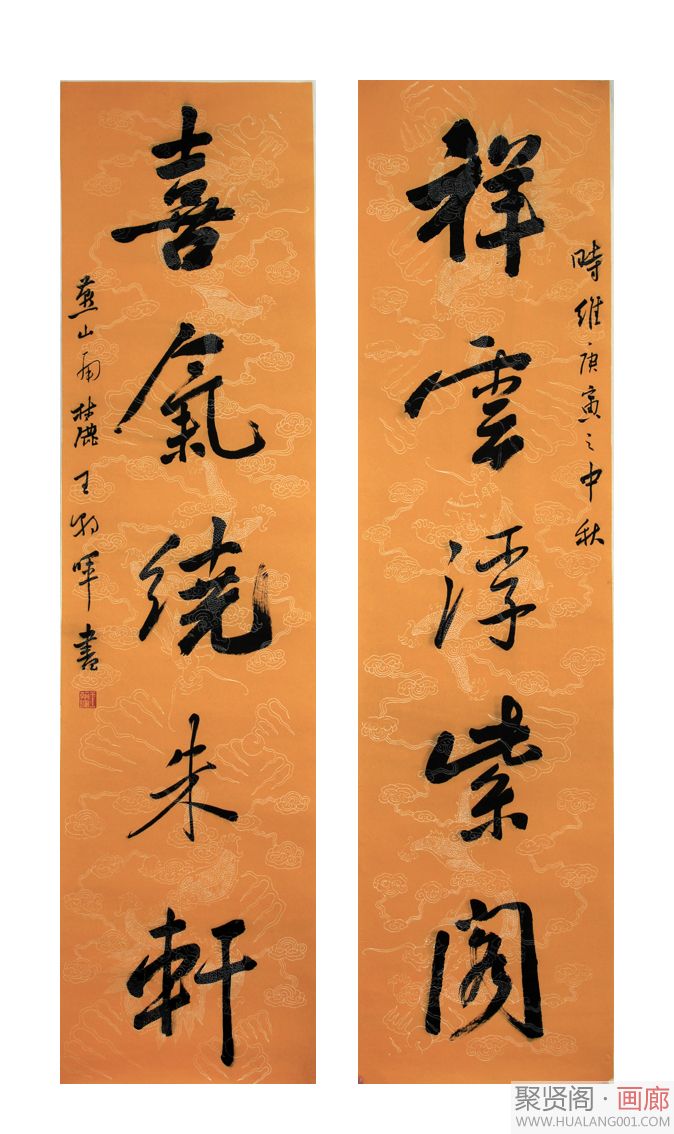 時維庚寅之中秋
祥雲浮紫阁
喜氣繞朱軒
燕山南麓王羽暉書
聚贤阁·画廊
WWW.HUALANG001.COM